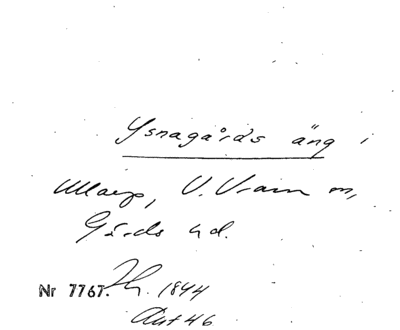 Ysnagårds äng i
Ullarp, V. Vram sn,
Gärds hd.
Nr 7767. Th. 1844
Akt 46